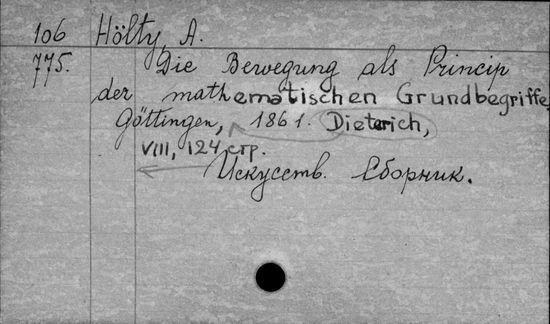 106 Hölty, A.
775. Die Bewegung als Princip
der mathematischen Grundbegriffe.
Göttingen, 1861. Dieterich,
VIII, 124 стр.
Искусств. Сборник.